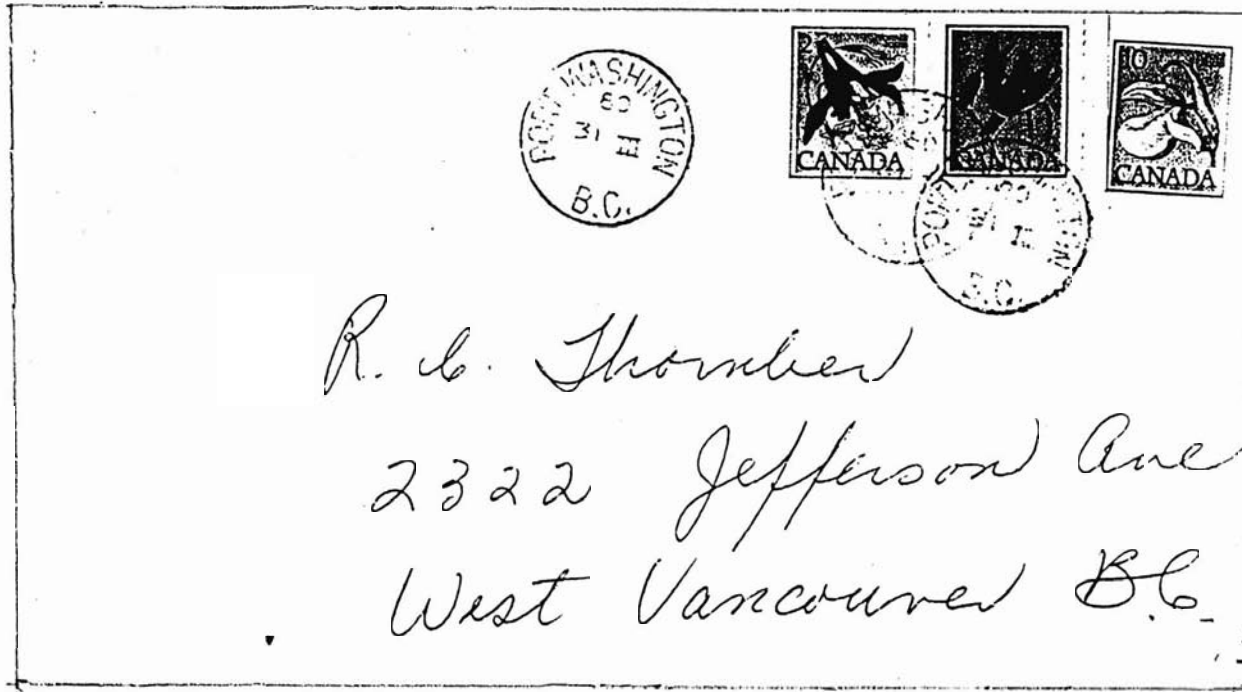 PORT WASHINGTON
80
31 III
B.C.
2
CANADA
CANADA
10
CANADA
B.C.
R. C. Thornber
2322 Jefferson Ave
West Vancouver B.C.